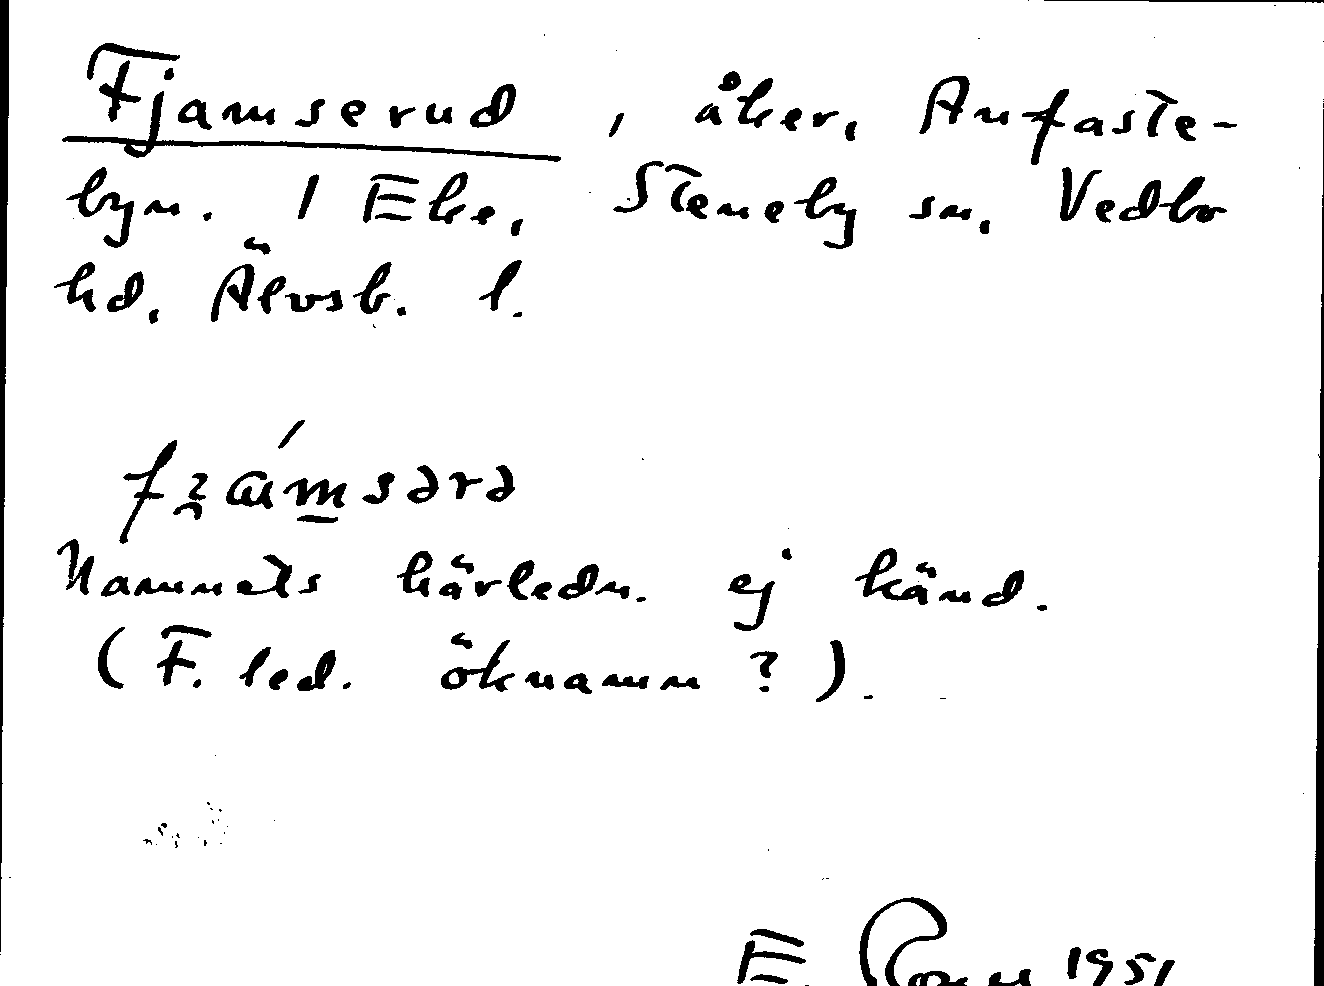 Fjamserud, åker, Anfaste-
byn. 1 Eke, Steneby sn, Vedbo
hd, Älvsb. l.
Namnets härledn. ej känd.
(F. led. öknamn?).
E. 1951